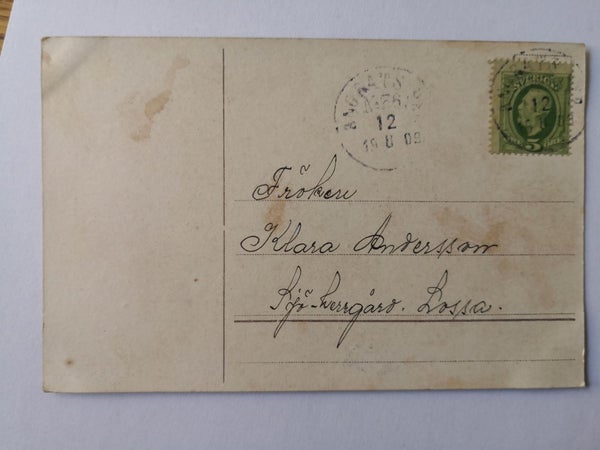 12
SVERIGE
12
5
Fröken
Klara Andersson
Sjö-herrgård. Lossa.